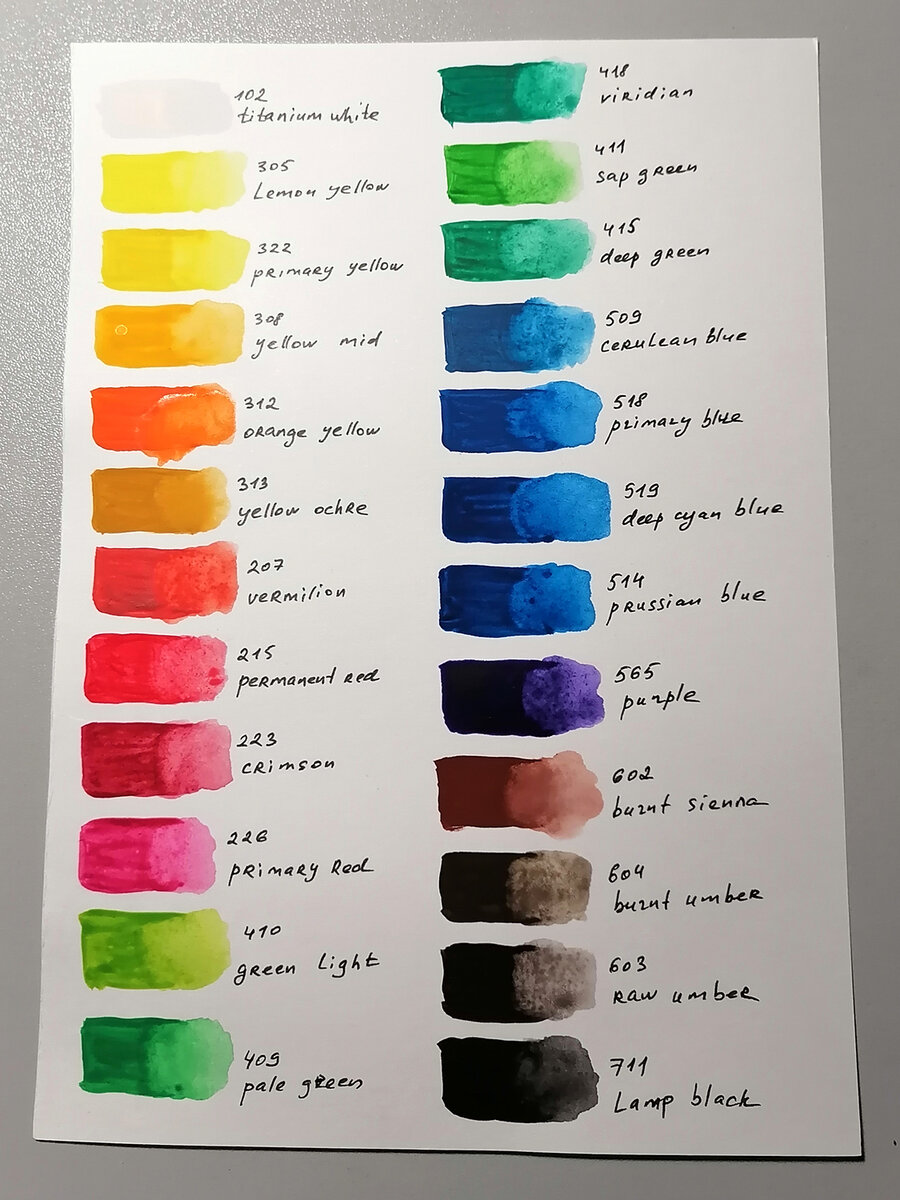 102
titanium white
305
Lemon yellow
322
primary yellow
308
yellow mid
312
orange yellow
313
yellow ochre
207
vermilion
215
permanent red
223
crimson
226
primary Red
410
green light
409
pale green
418
viridian
411
sap green
415
deep green
509
cerulean blue
518
primary blue
519
deep cyan blue
514
prussian blue
565
purple
602
burnt sienna
604
burnt umber
603
raw umber
711
Lamp black